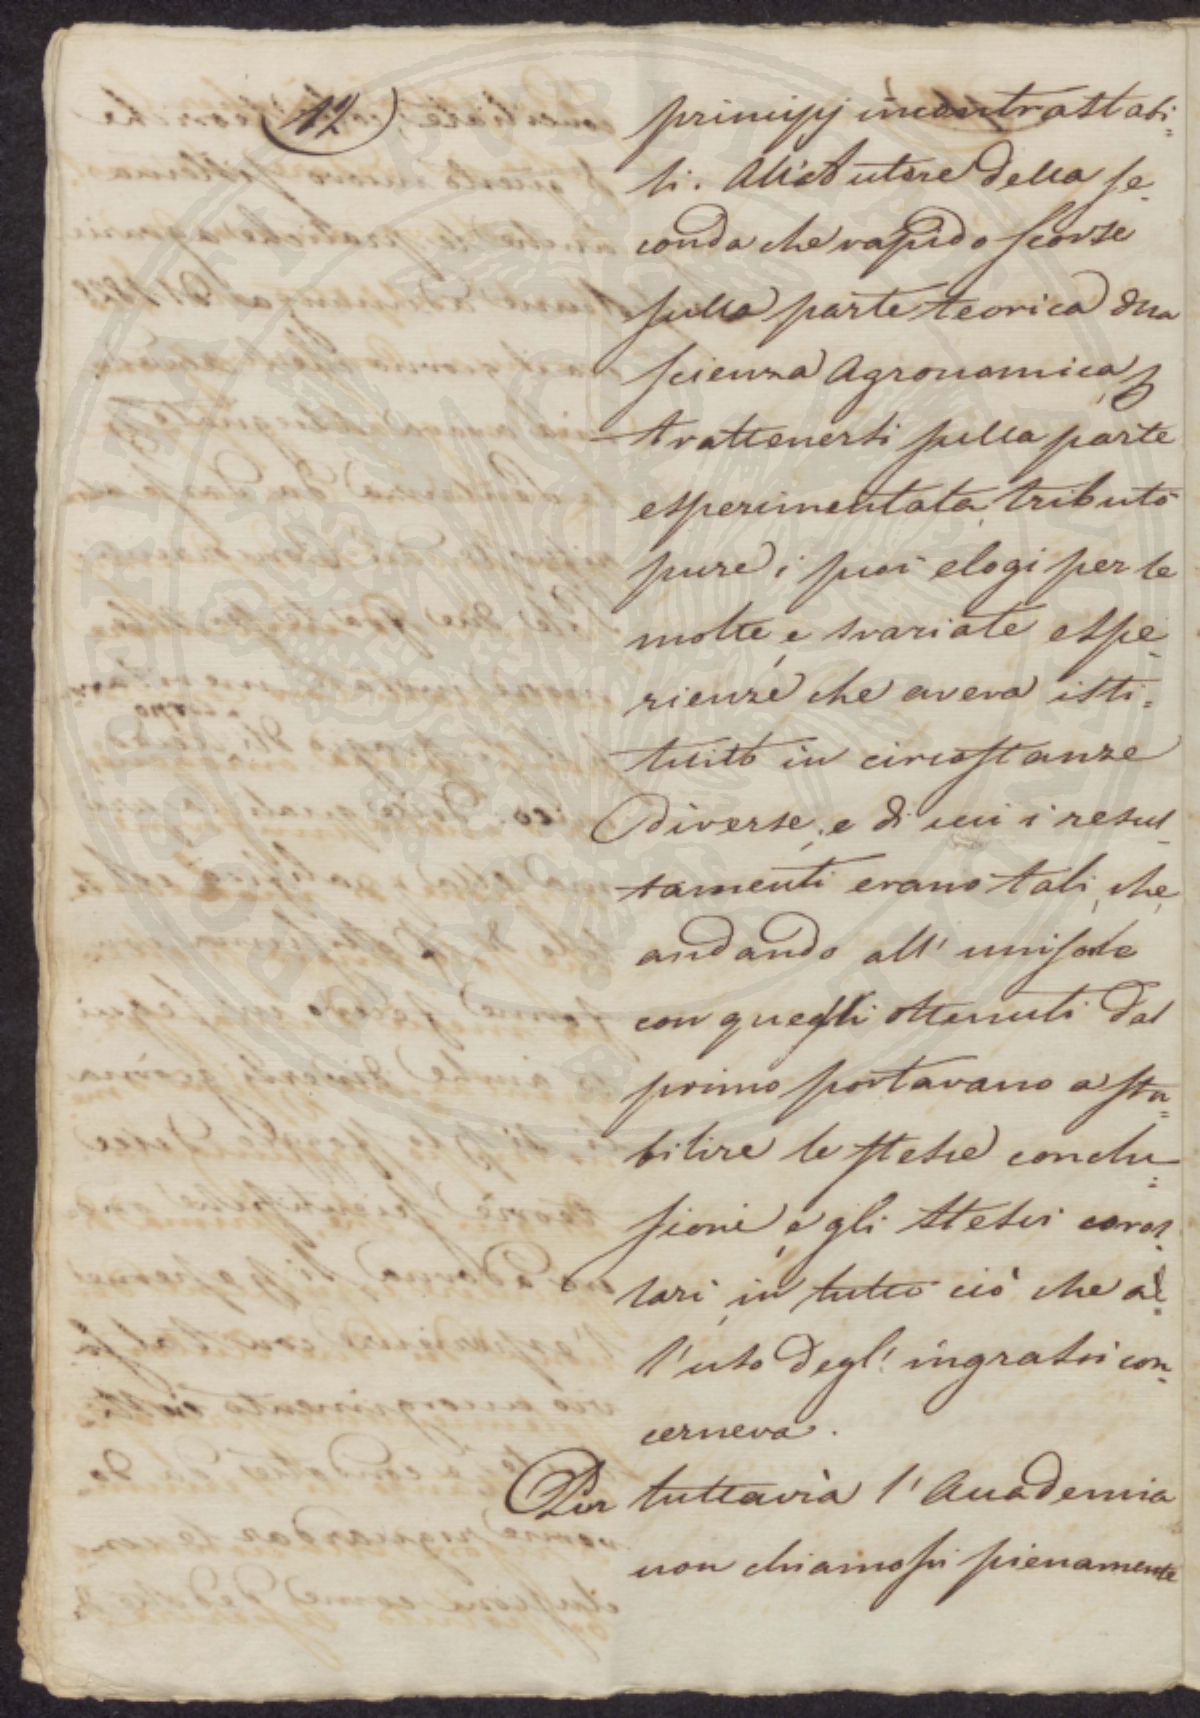 12)
principj incontrastabi=
li. All'Autore della se-
conda che rapido scorse
sulla parte teorica dlla
scienza Agronomica, p
trattenersi sulla parte
esperimentata, tributò
pure i suoi elogi per le
molte, e svariate espe-
rienze che aveva isti=
tuito in circostanze
diverse, e di cui i resul-
tamenti erano tali, che,
andando all'unisole
con quegli ottenuti dal
primo portavano a sta=
bilire le stesse conclu=
sioni, e gli stessi corol-
lari, in tutto ciò che al=
l'uso degl'ingrassi con=
cerneva.
Pur tuttavia l'Accademia
non chiamossi pienamente